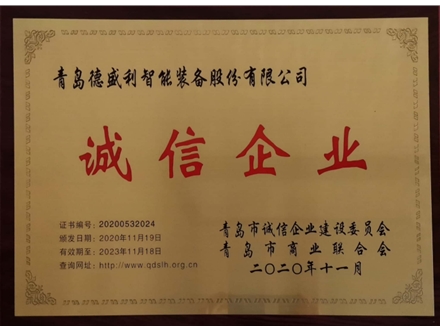 青岛德盛利智能装备股份有限公司
诚信企业
证书编号：20200532024
颁发日期：2020年11月19日
有效期至：2023年11月18日
查询网址：http://www.qdslh.org.cn
青岛市诚信企业建设委员会
青岛市商业联合会
二〇二〇年十一月